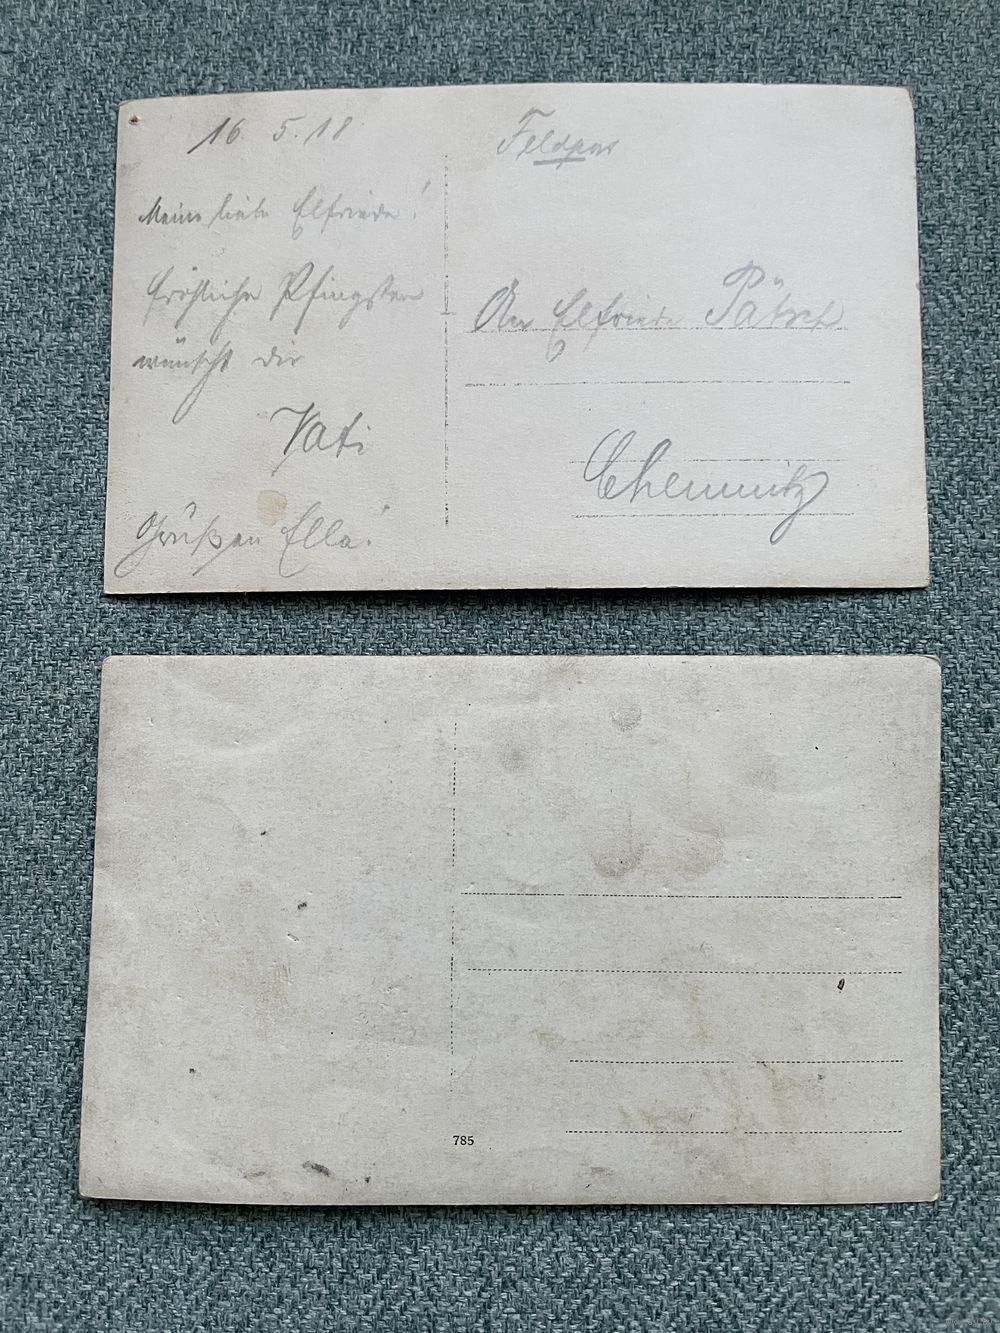 16. 5. 18.
Meine liebe Elfriede!
fröhliche Pfingsten
wünscht dir
Vati
Grüß an Ella!
Feldpost
An Elfriede
Chemnitz
785